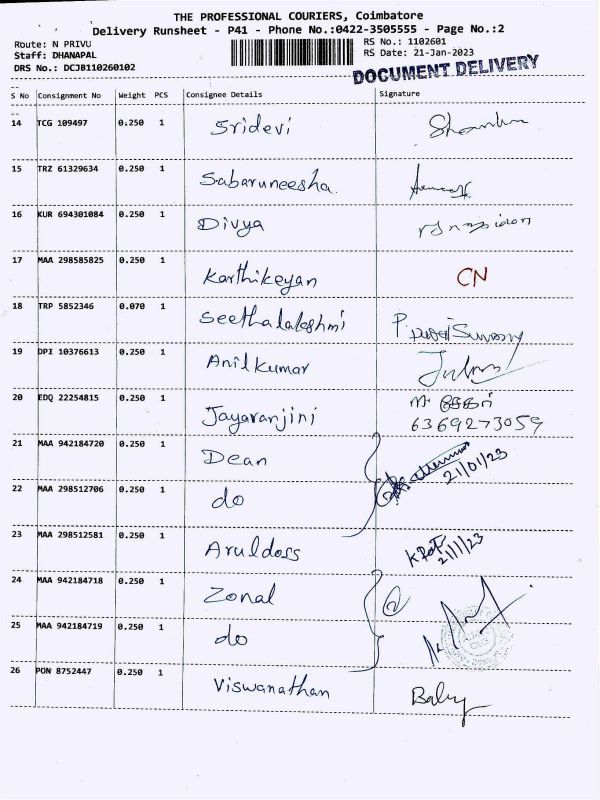 THE PROFESSIONAL COURIERS, Coimbatore
Delivery Runsheet - P41 - Phone No.:0422-3505555 - Page No.:2
Route: N PRIVU RS No.: 1102601
Staff: DHANAPAL RS Date: 21-Jan-2023
DRS No.: DCJB110260102
DOCUMENT DELIVERY
S No Consignment No Weight PCS Consignee Details Signature
14 TCG 109497 0.250 1 Sridevi
15 TRZ 61329634 0.250 1 Sabaruneesha.
16 KUR 694301084 0.250 1 Divya
17 MAA 298585825 0.250 1 Karthikeyan CN
18 TRP 5852346 0.070 1 Seethalakshmi
19 DPI 10376613 0.250 1 Anil Kumar
20 EDQ 22254815 0.250 1 Jayaranjini
6369273059
21 MAA 942184720 0.250 1 Dean
21/01/23
22 MAA 298512706 0.250 1 do
23 MAA 298512581 0.250 1 Aruldoss
21/1/23
24 MAA 942184718 0.250 1 Zonal
25 MAA 942184719 0.250 1 do
26 PON 8752447 0.250 1 Viswanathan Baby